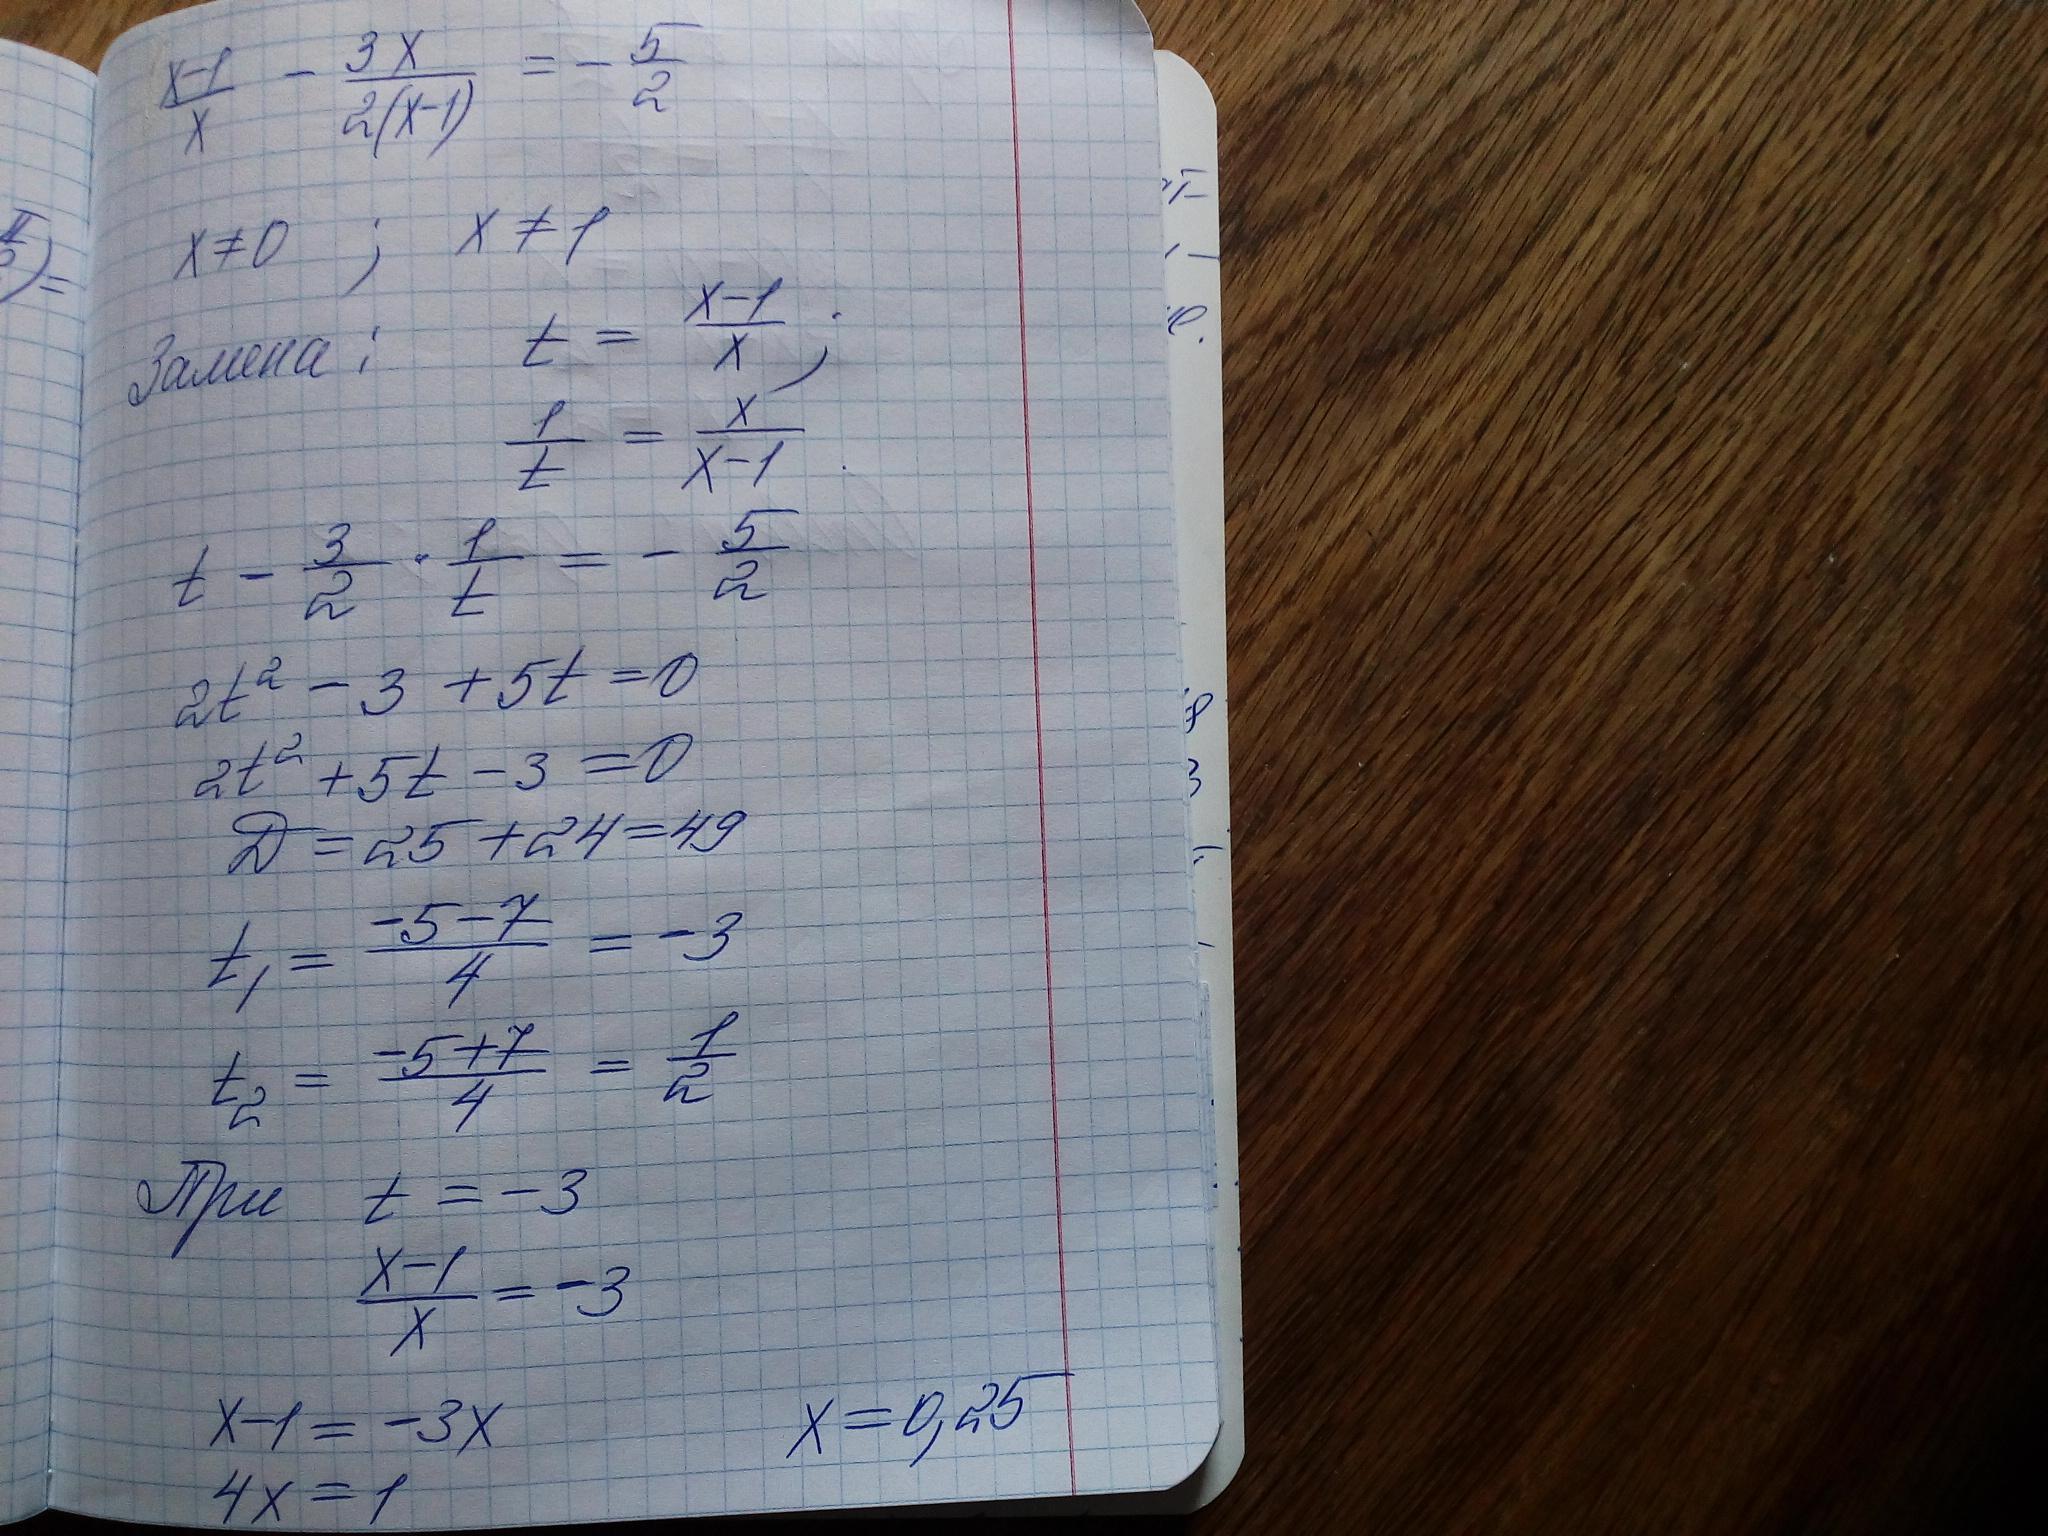 (x-1)/x - 3x/(2(x-1)) = -5/2
x≠0 ; x≠1
Замена: t = (x-1)/x ;
1/t = x/(x-1)
t - 3/2 · 1/t = -5/2
2t² - 3 + 5t = 0
2t² + 5t - 3 = 0
D = 25 + 24 = 49
t₁ = (-5-7)/4 = -3
t₂ = (-5+7)/4 = 1/2
При t = -3
(x-1)/x = -3
x-1 = -3x x = 0,25
4x = 1